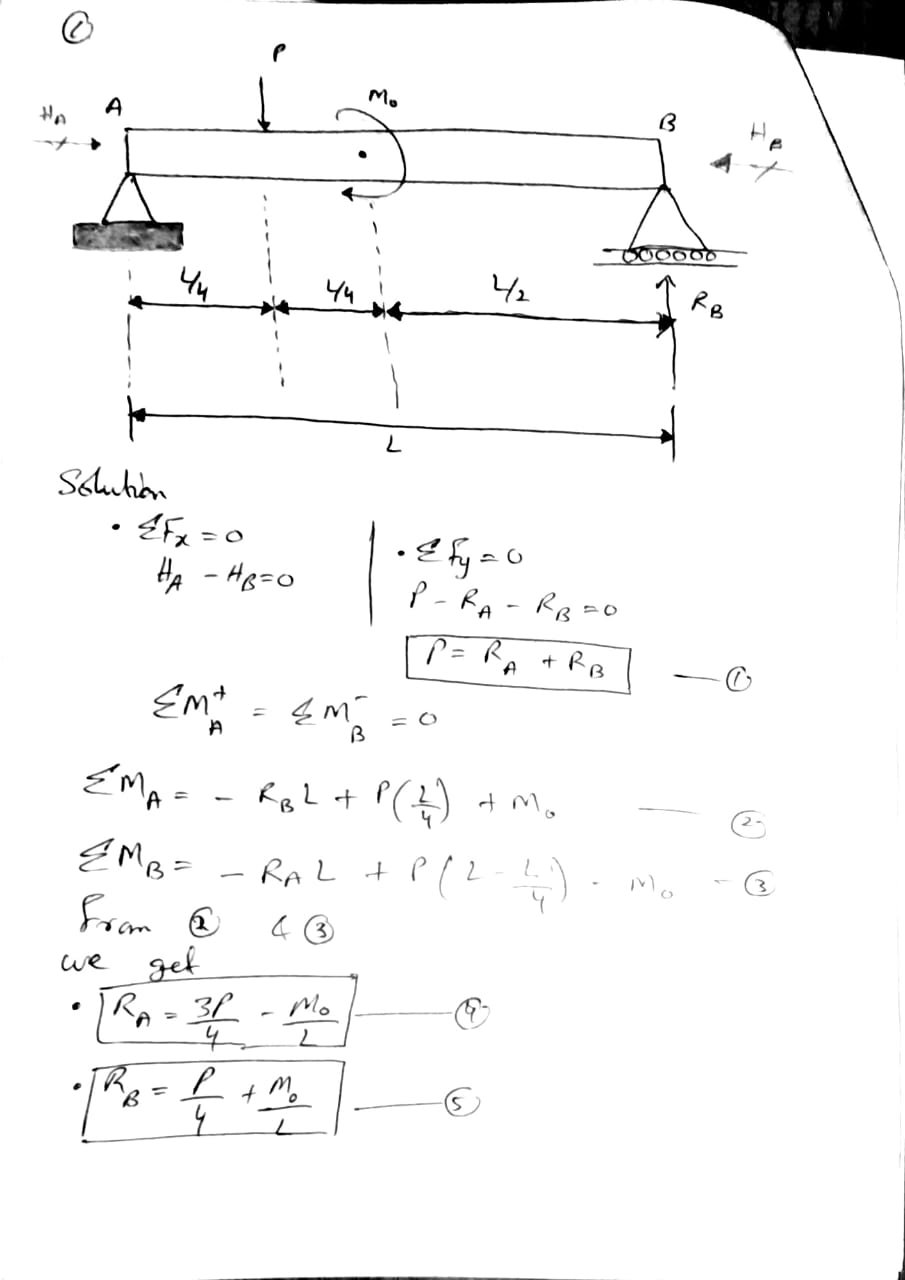 ①
P
M₀
H_A
A
B
H_B
L/4
L/4
L/2
R_B
L
Solution
• ΣFx = 0
H_A - H_B = 0
• Σfy = 0
P - R_A - R_B = 0
P = R_A + R_B — ①
ΣM⁺_A = ΣM⁻_B = 0
ΣM_A = - R_B L + P(L/4) + M₀ — ②
ΣM_B = - R_A L + P(L - L/4) - M₀ - ③
from ② & ③
we get
• R_A = 3P/4 - M₀/L — ④
• R_B = P/4 + M₀/L — ⑤